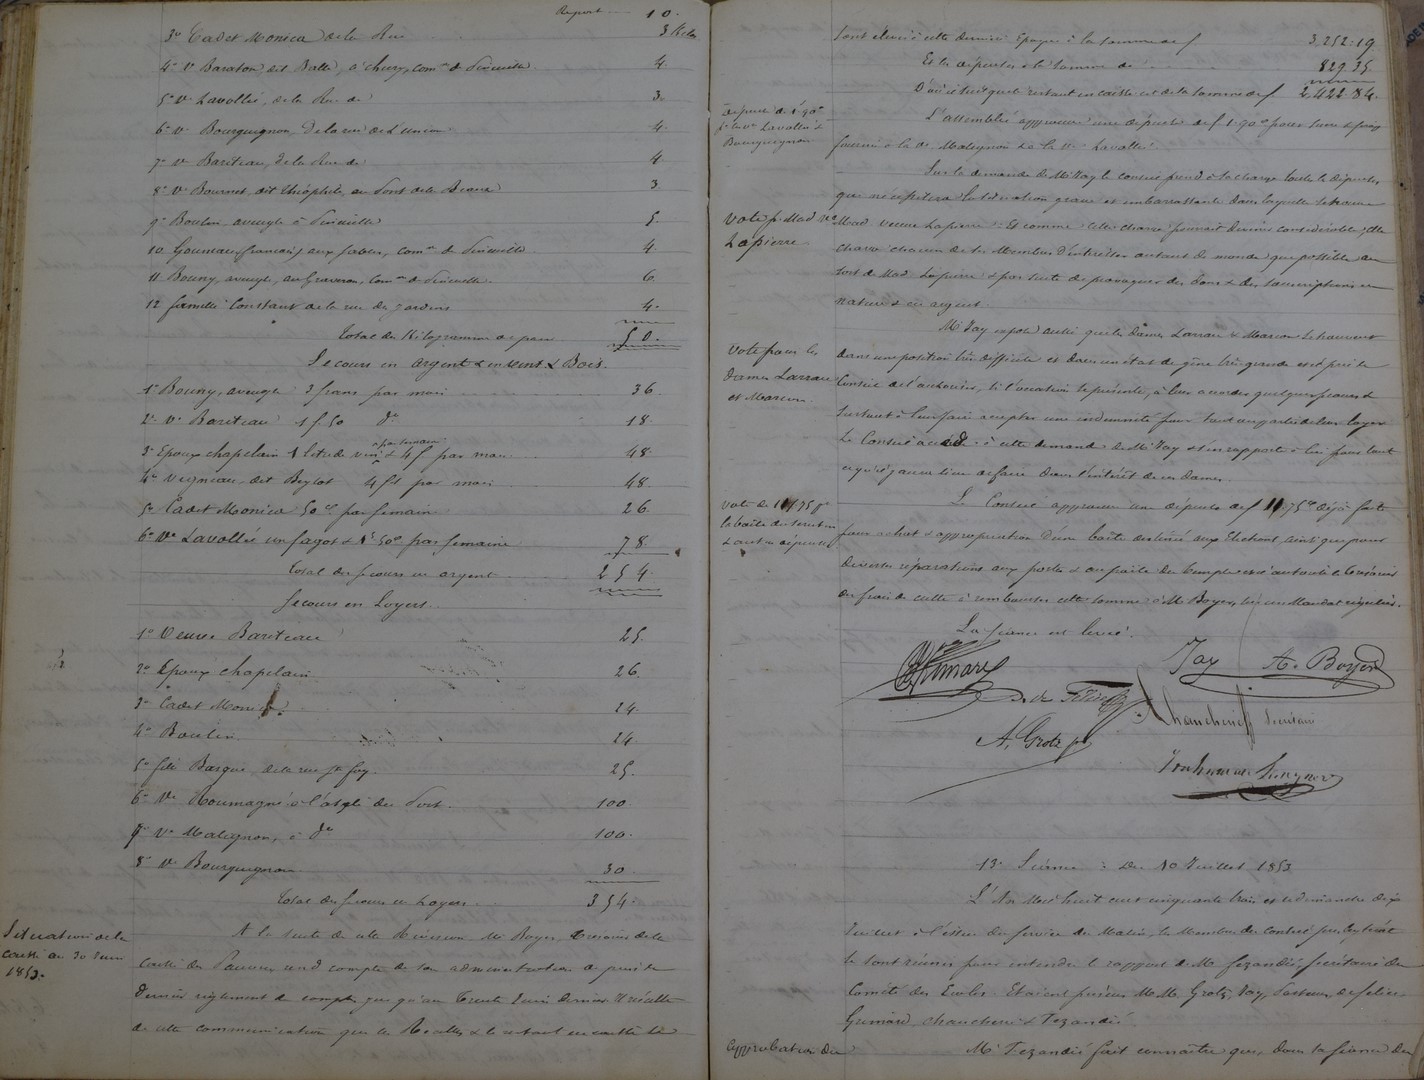 Report 10.
3° Cadet Monica de la Rue 3 Kilos
4° Ve Baraton dit Balle, à Chury, comne de 4.
5° Ve Lavollée, de la Rue de 3.
6° Ve Bourguignon, de la rue de l'union 4.
7° Ve Bariteau, de la Rue de 4
8° Ve Bournet, dit Théophile, au Pont de la Beaure 3.
9° Boutin aveugle à 5.
10 Gourseau (françois) aux sables, comne de 4.
11 Bouny, aveugle, au Graveron, comne de 6.
12 famille Constant de la rue des Jardins 4.
Total des Kilogrammes de pain 50.
Secours en argent & en & Bois.
1° Bouny, aveugle 3 francs par mois 36.
2° Ve Bariteau 1 f. 50 do 18.
3° Epoux chapelain 1 litre de vin par semaine & 4 f par mois 48.
4° Vigneau, dit Beylot 4 fs par mois 48.
5° Cadet Monica 50c par semaine 26.
6° Ve Lavollée un fagot & 1f 50c par semaine 78.
Total des secours en argent 254.
Secours en Loyers.
1° Veuve Bariteau 25.
2° Epoux chapelain 26.
3° Cadet Monica 24.
4° Boutin 24
5° fille Barque, de la rue Ste foy. 25.
6° Ve Roumagne à l'asyle du Port. 100
7° Ve Malignon, à do 100.
8° Ve Bourguignon 30
Total des secours en Loyers 354.
Situation de la
caisse au 30 Juin
1853.
A la suite de cette Révision Mr Boyer, Trésorier de la
caisse des Pauvres rend compte de son administration depuis le
dernier règlement de compte jusqu'au Trente Juin dernier. Il résulte
de cette communication que les Recettes & le restant en caisse se
sont élevés à cette dernière Epoque à la somme de f 3,252.19
Et les dépenses à la somme de 829.35
D'où il suit que le restant en caisse est de la somme de f 2,422.84.
dépense de 1f 90c
p. les Ves Lavollée &
Bourguignon
L'assemblée approuve une dépense de f 1.90c pour
fourni à la Ve Malignon & à la Ve Lavollée.
Vote p. Mad. Ve
Lapierre
Sur la demande de Mr Jay le conseil prend à sa charge toutes les dépenses
que nécessitera la situation grave et embarrassante dans laquelle se trouve
Mad. veuve Lapierre. Et comme cette charge pourrait devenir considérable, elle
charge chacun de ses Membres d'intéresser autant de monde que possible au
sort de Mad. Lapierre & par suite de provoquer des dons & des souscriptions en
nature & en argent.
Vote pour les
dames Larrau
et Marcon.
Mr Jay expose aussi que les dames Larrau & Marcon se trouvent
dans une position très difficile et dans un état de gêne très grande et il prie le
Conseil de l'autoriser, si l'occasion se présente, à leur accorder quelques secours &
surtout à leur faire accepter une indemnité pour tout ou partie de leur loyer.
Le Conseil accède à cette demande de Mr Jay & s'en rapporte à lui pour tout
ce qu'il y aura lieu de faire dans l'intérêt de ces dames.
Vote de 11f 75 p.
la boîte du scrutin
& autres dépenses
Le Conseil approuve une dépense de f 11.75c déjà faite
pour achat & appropriation d'une boîte destinée aux Elections, ainsi que pour
diverses réparations aux portes & au poêle du temple et il autorise le trésorier
des frais de culte à rembourser cette somme à Mr Boyer, sur un Mandat régulier.
La séance est levée.
Grimard Jay A. Boyer
A. Grotz ps Chancherie Secrétaire
13e Séance : Du 10 Juillet 1853
L'An Mil huit cent cinquante trois et le dimanche dix
Juillet à l'issue du service du Matin, les Membres du conseil presbytéral
se sont réunis pour entendre le rapport de Mr Fezandié, secrétaire du
Comité des Ecoles. Etaient présens M.M. Grotz, Jay, Pasteurs, de félice
Grimard, chancherie & Fézandié.
Approbation du
Mr Fezandié fait connaître que, dans la séance du